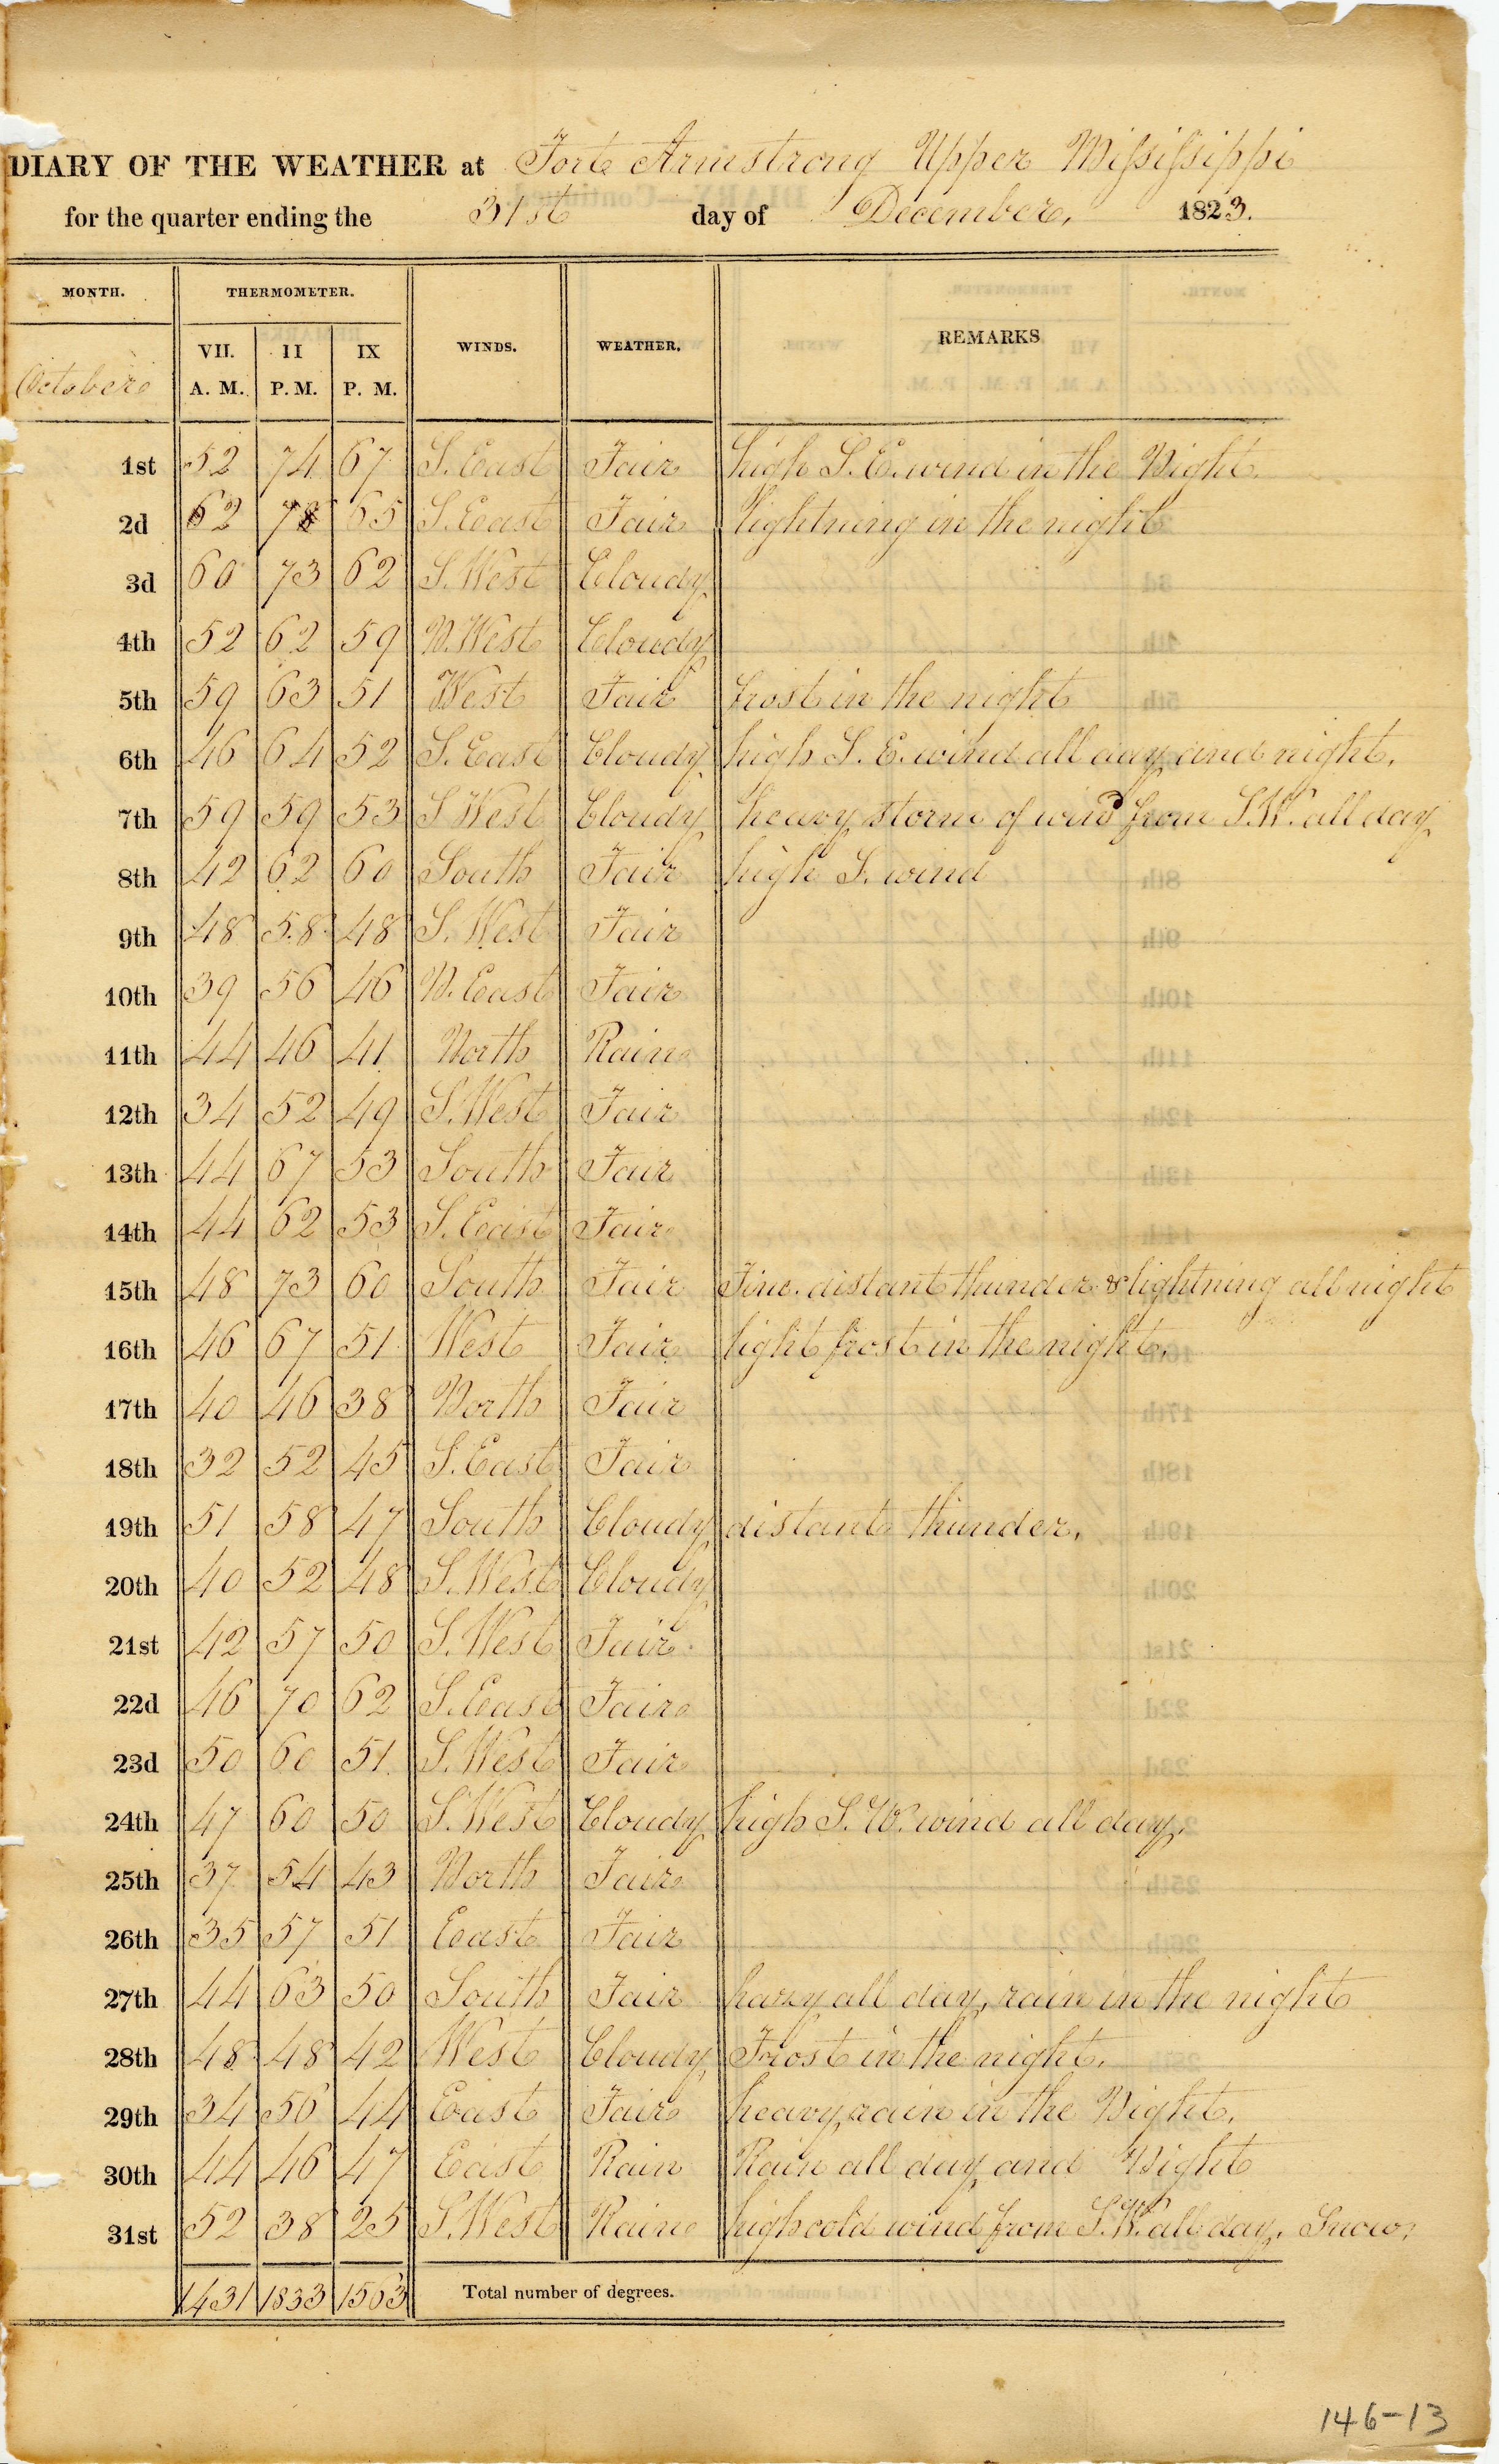 DIARY OF THE WEATHER at Fort Armstrong Upper Mississippi
for the quarter ending the 31st day of December, 1823.
MONTH. THERMOMETER. WINDS. WEATHER. REMARKS
October VII. A. M. II P. M. IX P. M.
1st 52 74 67 S. East Fair high S. E. wind in the Night.
2d 62 78 65 S. East Fair lightning in the night
3d 60 73 62 S. West Cloudy
4th 52 62 59 N. West Cloudy
5th 59 63 51 West Fair frost in the night
6th 46 64 52 S. East Cloudy high S. E. wind all day and night.
7th 59 59 53 S West Cloudy heavy storm of wind from S.W. all day
8th 42 62 60 South Fair high S. wind
9th 48 58 48 S. West Fair
10th 39 56 46 N. East Fair
11th 44 46 41 North Rain
12th 34 52 49 S. West Fair
13th 44 67 53 South Fair
14th 44 62 53 S. East Fair
15th 48 73 60 South Fair Fine. distant thunder & lightning all night
16th 46 67 51 West Fair light frost in the night.
17th 40 46 38 North Fair
18th 32 52 45 S. East Fair
19th 51 58 47 South Cloudy distant thunder.
20th 40 52 48 S. West Cloudy
21st 42 57 50 S. West Fair
22d 46 70 62 S. East Fair
23d 50 60 51 S. West Fair
24th 47 60 50 S. West Cloudy high S. W. wind all day.
25th 37 54 43 North Fair
26th 35 57 51 East Fair
27th 44 63 50 South Fair hazy all day, rain in the night
28th 48 48 42 West Cloudy Frost in the night.
29th 34 56 44 East Fair heavy rain in the Night.
30th 44 46 47 East Rain Rain all day and Night
31st 52 38 25 S. West Rain high cold wind from S. W. all day. Snow.
1431 1833 1563 Total number of degrees.
146-13